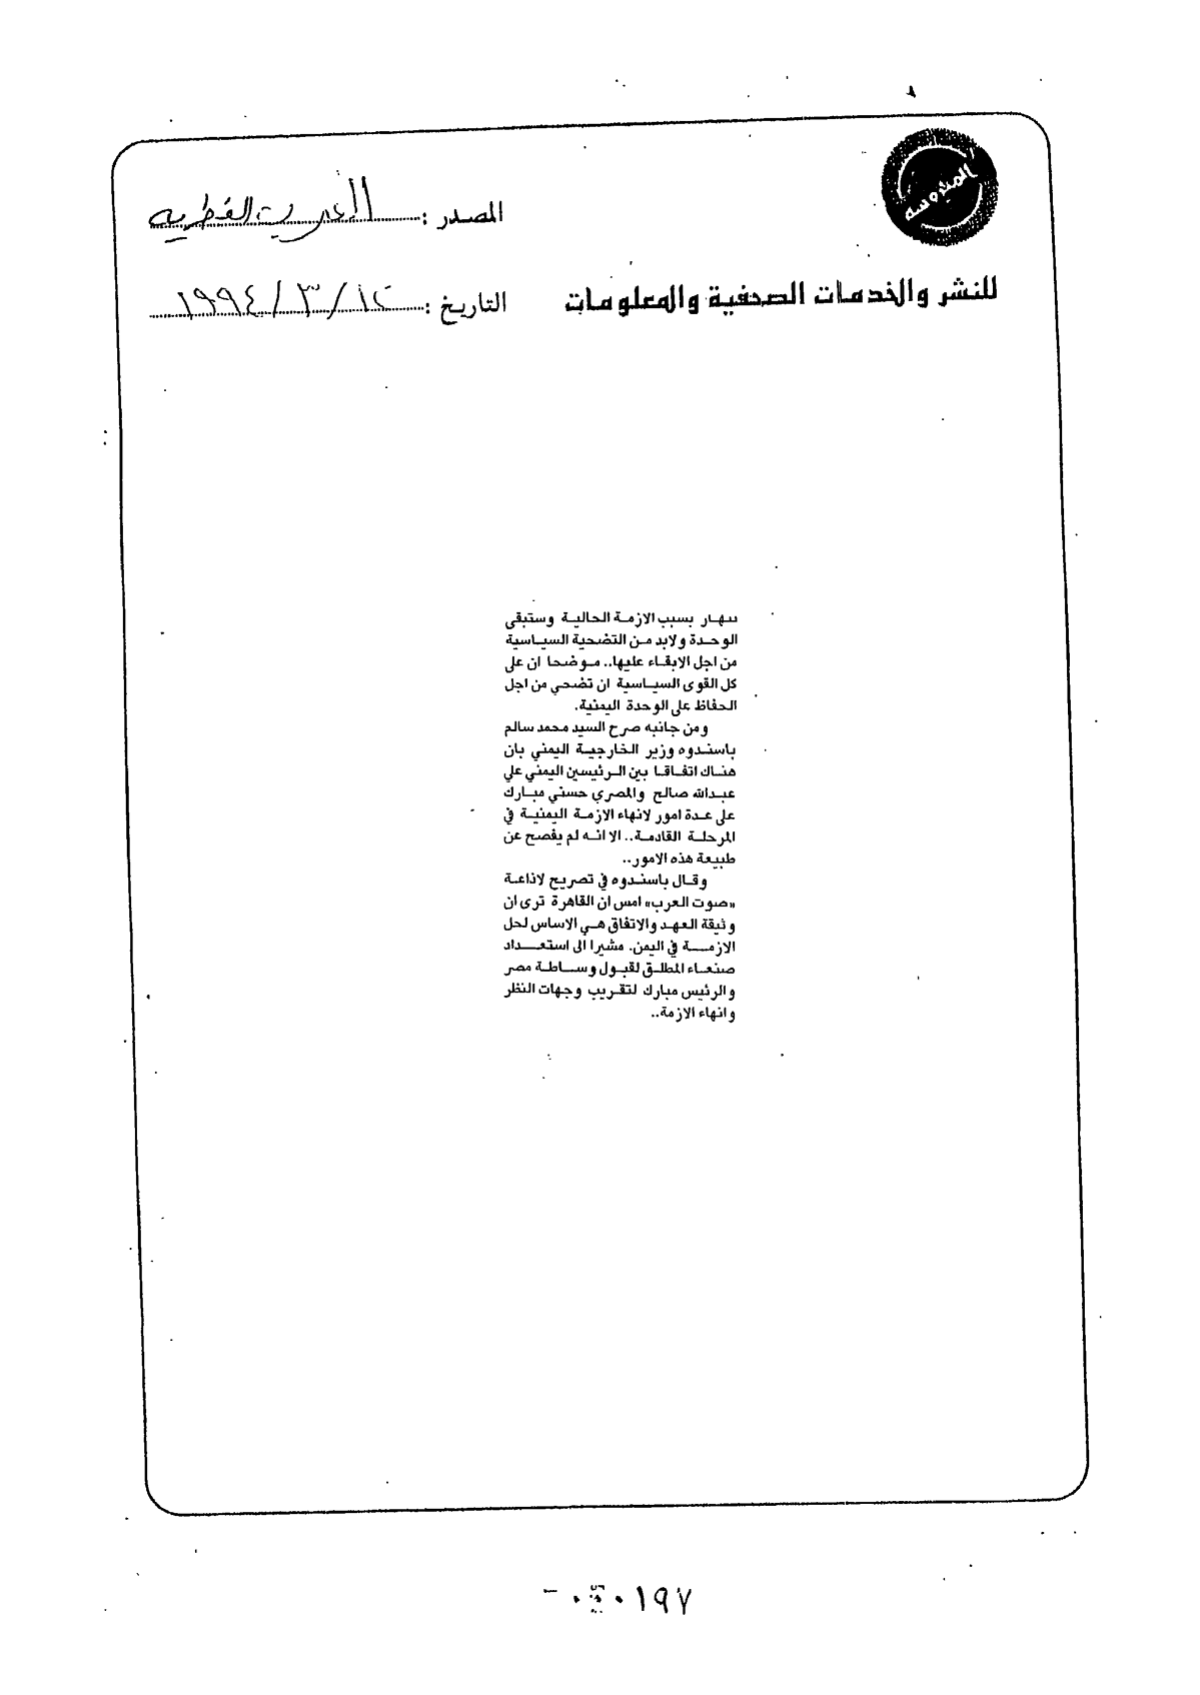 المصدر :
للنشر والخدمات الصحفية والمعلومات
التاريخ : ١٩٩٤/٣/١٢
بسبب الازمة الحالية وستبقى
الوحدة ولابد من التضحية السياسية
من اجل الابقاء عليها.. موضحا ان على
كل القوى السياسية ان تضحي من اجل
الحفاظ على الوحدة اليمنية.
ومن جانبه صرح السيد محمد سالم
باسندوه وزير الخارجية اليمني بان
هناك اتفاقا بين الرئيسين اليمني علي
عبدالله صالح والمصري حسني مبارك
على عدة امور لانهاء الازمة اليمنية في
المرحلة القادمة.. الا انه لم يفصح عن
طبيعة هذه الامور..
وقال باسندوه في تصريح لاذاعة
«صوت العرب» امس ان القاهرة ترى ان
وثيقة العهد والاتفاق هي الاساس لحل
الازمة في اليمن. مشيرا الى استعداد
صنعاء المطلق لقبول وساطة مصر
والرئيس مبارك لتقريب وجهات النظر
وانهاء الازمة..